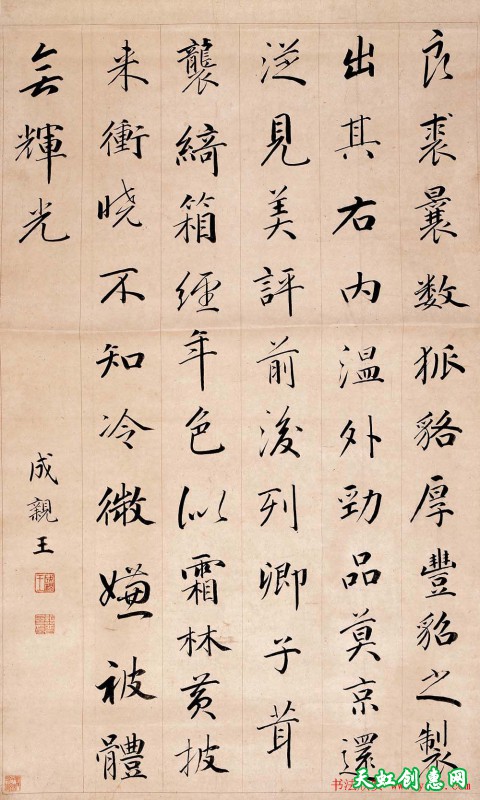 良裘曩数狐貉厚豐貂之製
出其右内温外勁品莫京還
從見美評前後列卿子茸
襲綺箱經年色似霜林黄披
来衝晓不知冷微嫌被體
無輝光
成親王
天虹创惠网